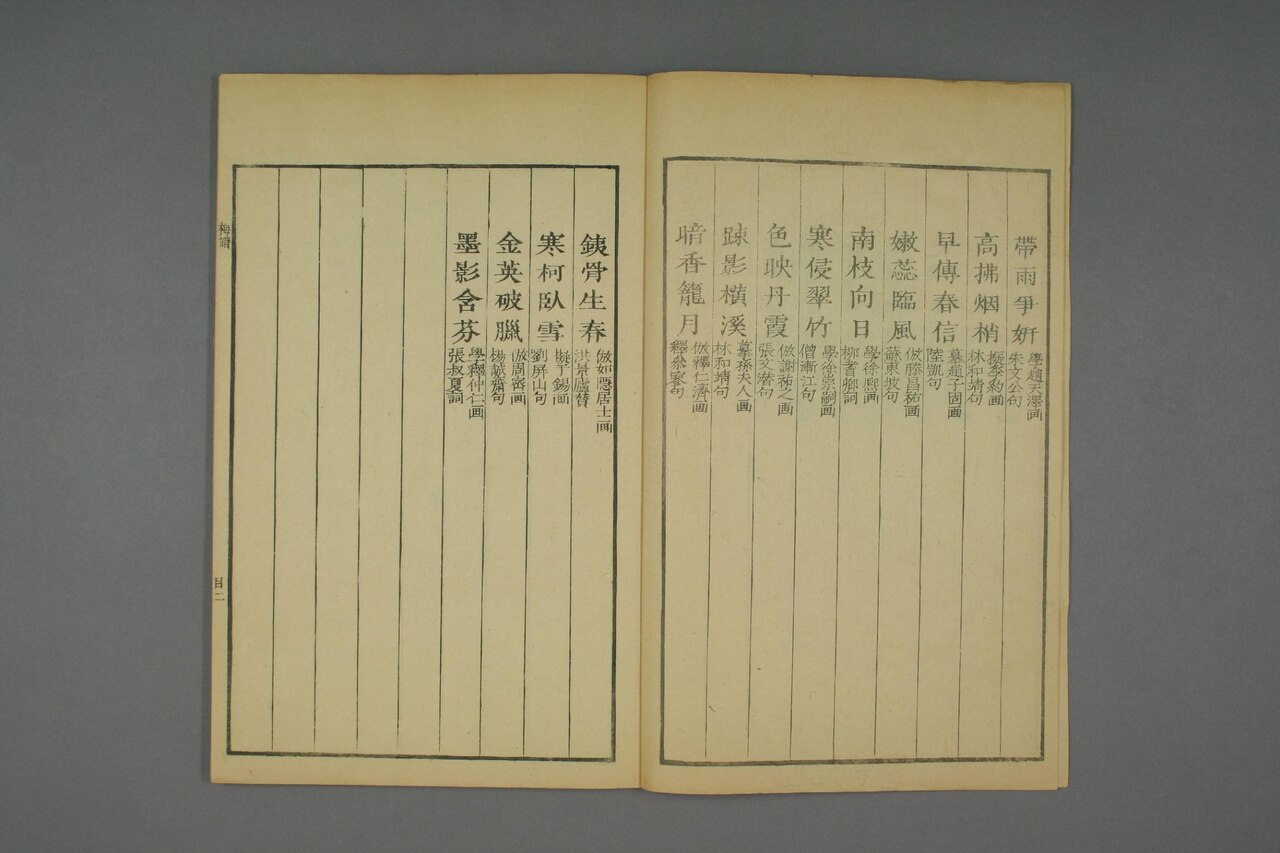 帶雨爭妍 學趙天澤画 朱文公句
高拂烟梢 擬李豹画 林和靖句
早傳春信 墓趙子固画 陸凱句
嫩蕊臨風 倣滕昌祐画 蘇東坡句
南枝向日 學徐熙画 柳耆卿詞
寒侵翠竹 學徐崇嗣画 僧漸江句
色映丹霞 倣謝祐之画 張文潛句
踈影橫溪 摹孫夫人画 林和靖句
暗香籠月 倣釋仁濟画 釋參寥句
銕骨生春 倣如隠居士画 洪景廬贊
寒柯臥雪 擬丁錫画 劉屏山句
金英破臘 倣周密画 楊誠齋句
墨影含芬 學釋仲仁画 張叔夏詞
梅譜
目二